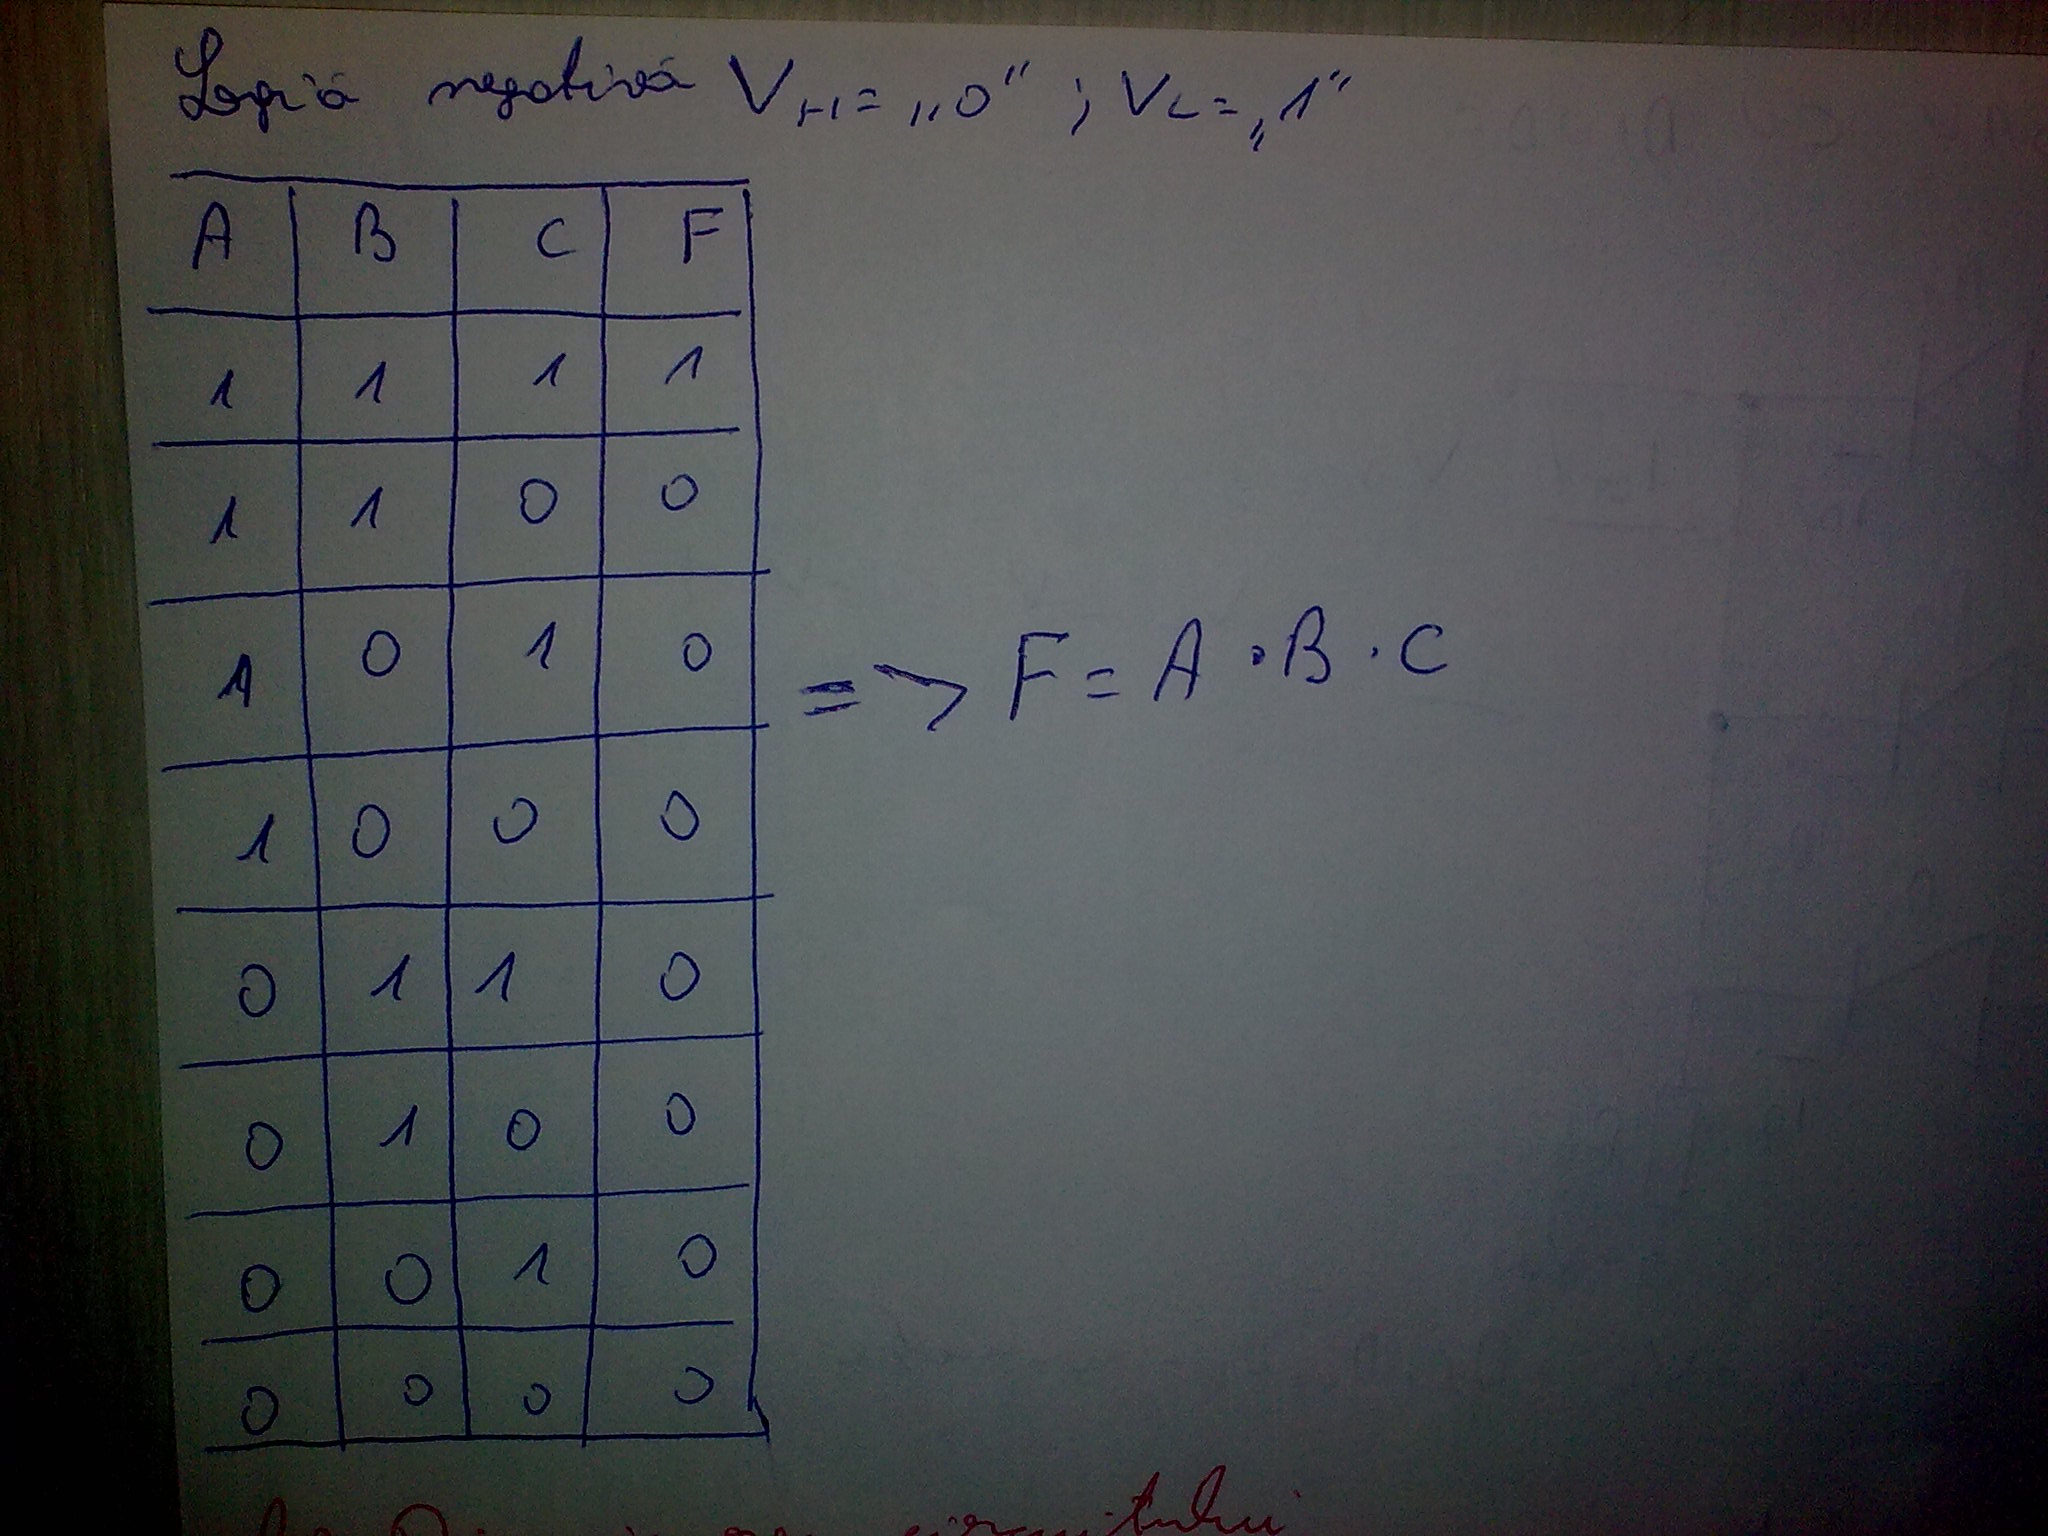 Logică negativă VH = „0” ; VL = „1”
A B C F
1 1 1 1
1 1 0 0
1 0 1 0
1 0 0 0
0 1 1 0
0 1 0 0
0 0 1 0
0 0 0 0
=> F = A · B · C
circuitului